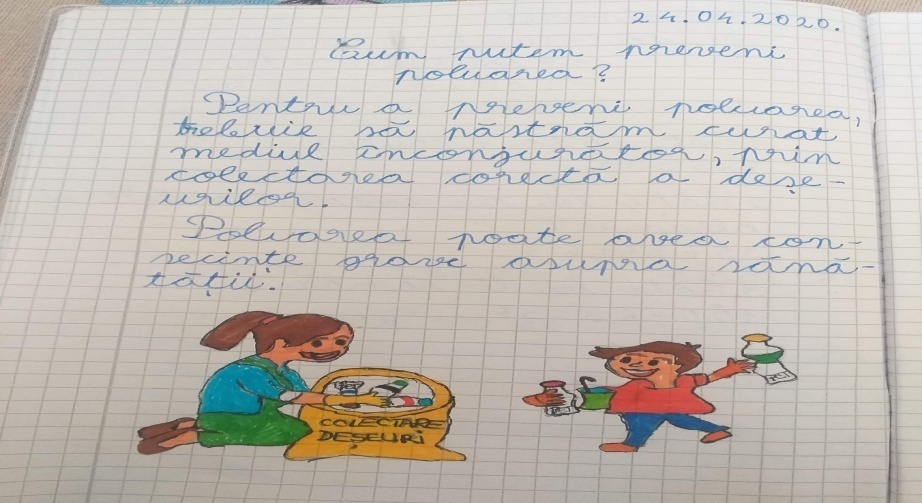 24.04.2020.
Cum putem preveni
poluarea?
Pentru a preveni poluarea,
trebuie să păstrăm curat
mediul înconjurător, prin
colectarea corectă a deșe-
urilor.
Poluarea poate avea con-
secințe grave asupra sănă-
tății.
COLECTARE
DEȘEURI
PET